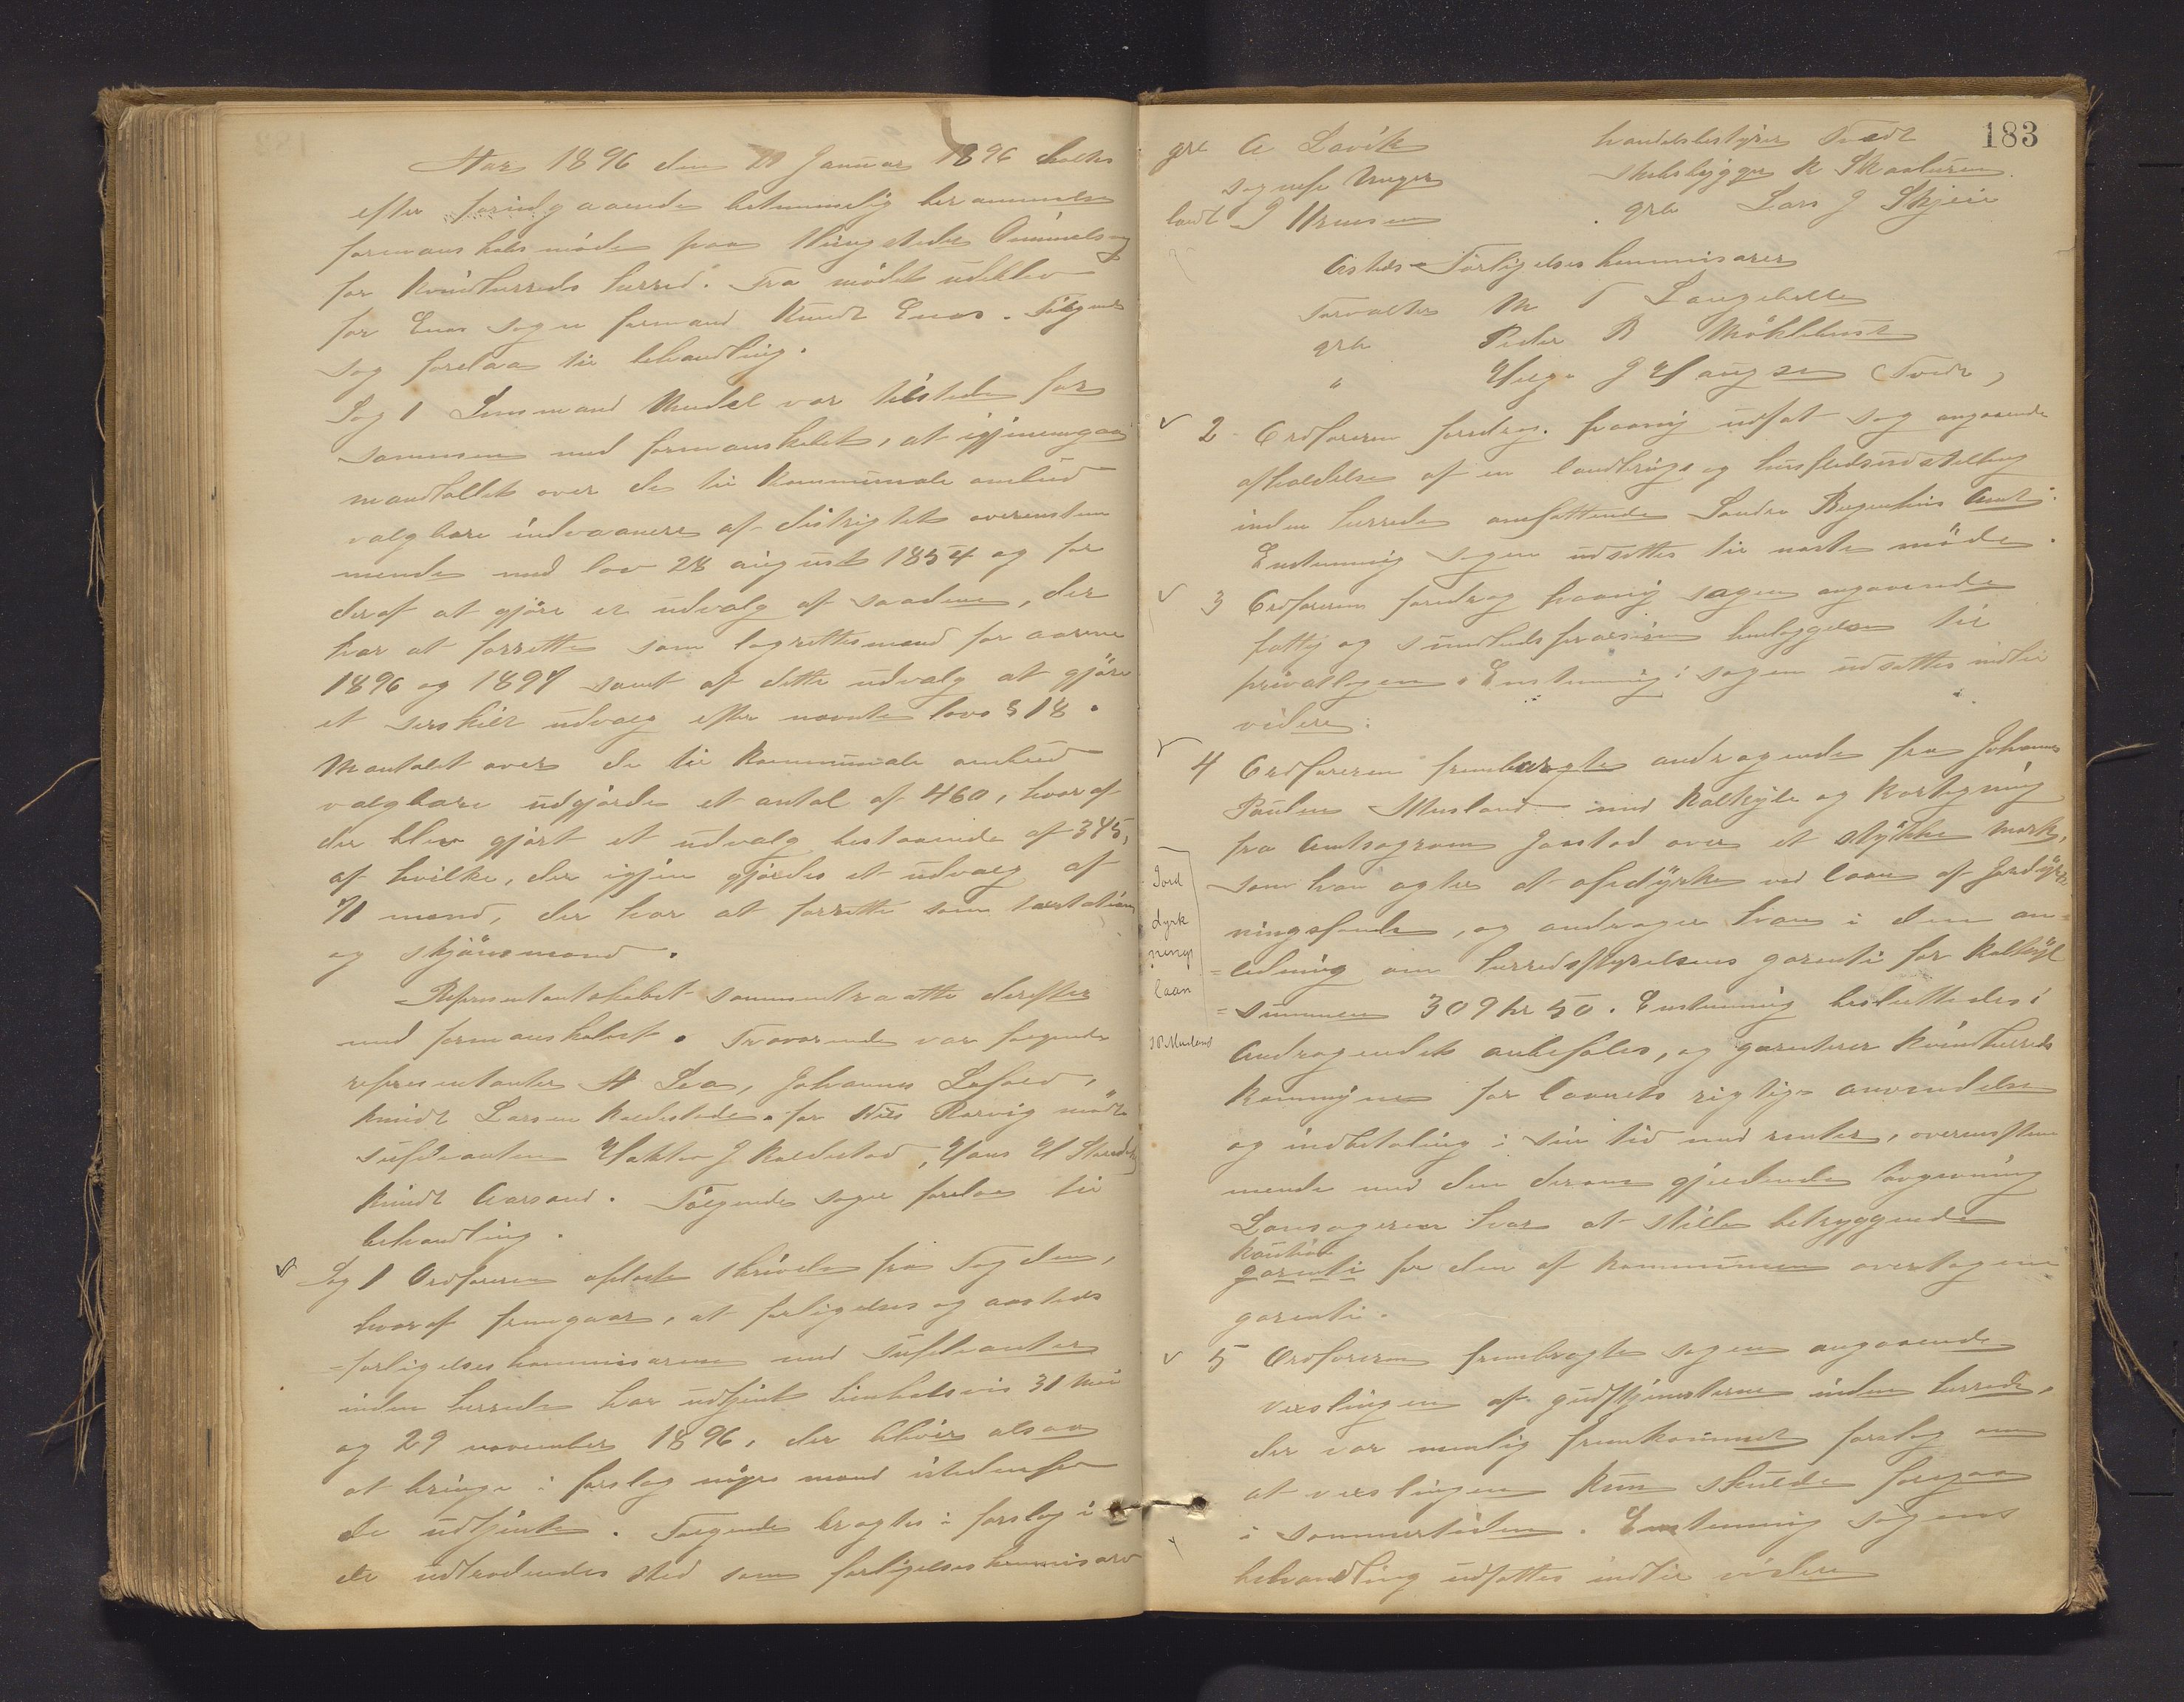 Aar 1896 den 11 Januar 1896 holtes
efter forudgaaende betimmelig berammelse
formanskabsmöde paa thingstedet Ommelsvog
for Kvindherreds herred. Fra mödet udeblev
for Enæs sogn formand Knudt Enæs. Fölgende
sag forelaa til behandling.
Sag 1 Lensmand Medel var tilstede for
sammen med formanskabet, at igjennemgaa
mandtallet over de til kommunale ombud
valgbare indvaanere af distrigtet overenstem
mende med lov 28 august 1854 og for
deraf at gjöre et udvalg af saadane, der
har at forrette som lagrettesmend for aarene
1896 og 1897 samt af dette udvalg at gjöre
et serskilt udvalg efter nevnte lovs § 18.
Mantalet over de til kommunale ombud
valgbare udgjorde et antal af 460, hvoraf
der blev gjort et udvalg bestaaende af 345,
af hvilke, der igjen gjordes et udvalg af
71 mend, der har at forrette som taxtations
og skjönsmend.
Representantskabet sammentraatte derefter
med formanskabet. Fraverende var fölgende
representanter A Lea, Johannes Lofald,
Knudt Larsen Kaldestad. for Nils Rørvig mödte
supleanten Haktor J Kaldestad, Hans H
Knudt Aarsand. Fölgende sager forelaa til
behandling.
Sag 1 Ordföreren oplæste skrivelse fra Fogden,
hvoraf fremgaar, at forligelses og aasteds
=forligelseskommisærene med supleanter
inden herredet har udtjent henholdsvis 31 Mai
og 29 november 1896, der bliver alsaa
at bringe i forslag nye mend istedenfor
de udtjente. Fölgende bragtes i forslag i
de udtredendes sted som forligelseskommisær
183
grb A Lavik handelsbestyrer Tvedt
sogneprest Unger skibsbygger K Skaaluren
landh J Hansen grb Lars J Skjeie
Asteds-Forligelseskommisærer
Forvalter M T Langeballe
grb Peder B Möklebust
" Helge J Haugen (Tvedt)
2 Ordföreren foredrog. paany udsat sag angaaende
afholdelse af en landbrugs og husflidsudstilling
inden herredet omfattende Söndre Bergenhus Amt.
Enstemmig sagen udsettes til neste möde.
3 Ordföreren foredrog paany sagen angaaende
fattig og sundheds henleggelsen til
privatlegen. Enstemmig sagen udsettes indtil
videre.
4 Ordföreren frembragte andragende fra Johannes
Paulsen Musland med kalkyle og kartegning
fra Amtsagronom Jaastad over et stykke mark,
som han agter at opdyrke ved laan af Jordyrk
ningsfondet, og andrager han i den an=
=ledning om herredsstyrelsens garenti for kalkyl
=summen 309 kr 50. Enstemmig besluttedes:
Andragendet anbefales, og garenterer Kvindherreds
kommyne for laanets rigtige anvendelse
og indbetaling i sin tid med renter, overenstem
mende med den derom gjeldende lovgivning
Laansögeren har at stille betryggende
kaution
garenti for den af kommunen overtagne
garenti.
Jord
dyrk
nings
laan
J P Musland
5 Ordföreren frembragte sagen angaaende
vexlingen af gudstjenesterne inden herredet,
der var nemlig fremkommet forslag om
at vexlingen kun skulde foregaa
i sommertiden. Enstemmig sagens
behandling udsettes indtil videre